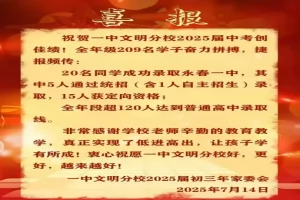 喜报
祝贺一中文明分校2025届中考创
佳绩！全年级209名学子奋力拼搏，捷
报频传：
20名同学成功录取永春一中，其
中5人通过统招（含1人自主招生）录
取，15人获定向资格；
全年段超120人达到普通高中录取
线。
非常感谢学校老师辛勤的教育教
学，真正实现了低进高出，让孩子学
有所成！衷心祝愿一中文明分校好，更
好，越来越好！
一中文明分校2025届初三年家委会
2025年7月14日